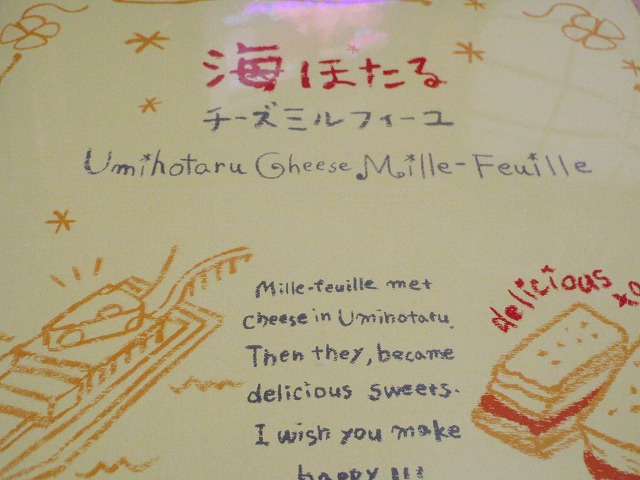 海ほたる
チーズミルフィーユ
Umihotaru Cheese Mille-Feuille
Mille-feuille met
cheese in Umihotaru.
Then they, became
delicious sweets.
I wish you make
happy !!!
delicious